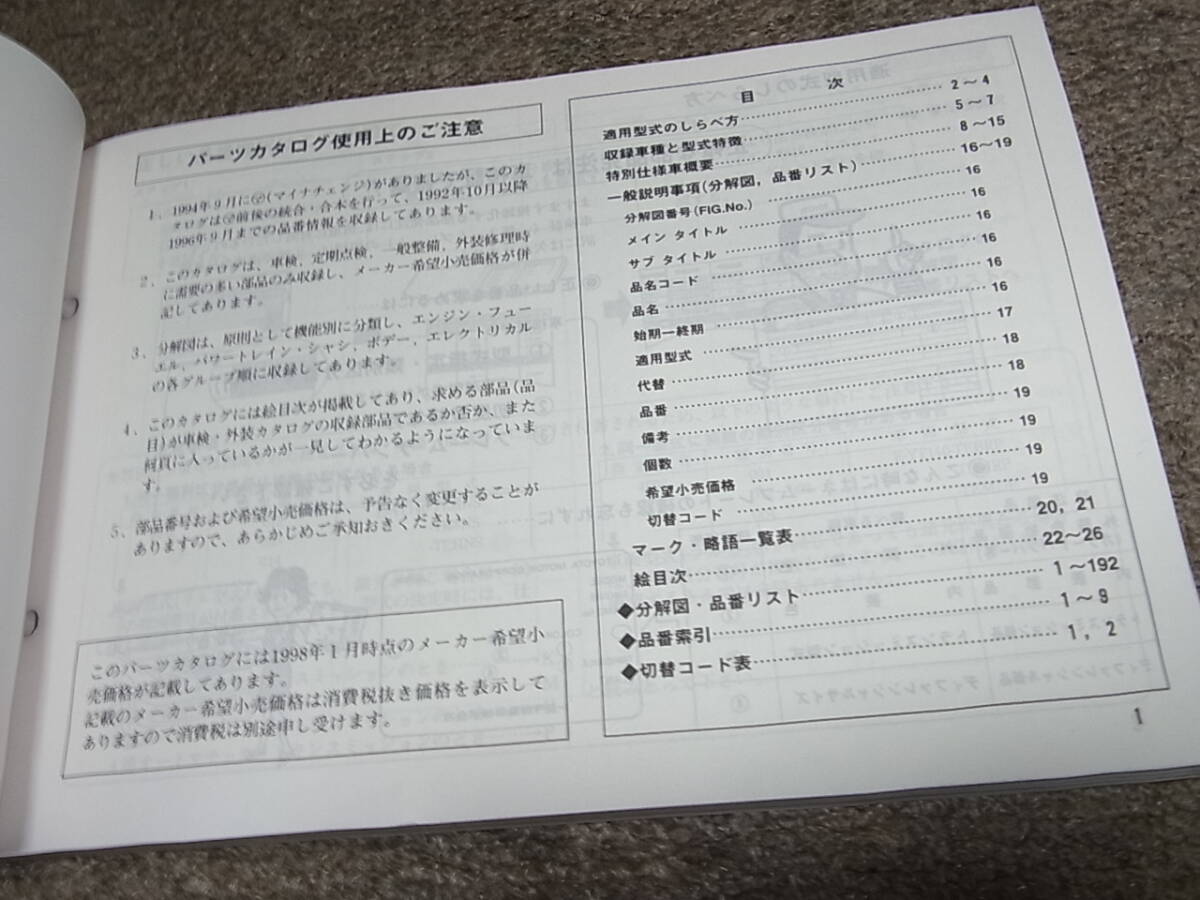 パーツカタログ使用上のご注意
1、1994年9月に㋮(マイナチェンジ)がありましたが、このカ
タログは㋮前後の統合・合本を行って、1992年10月以降
1996年9月までの品番情報を収録してあります。
2、このカタログは、車検、定期点検、一般整備、外装修理時
に需要の多い部品のみ収録し、メーカー希望小売価格が併
記してあります。
3、分解図は、原則として機能別に分類し、エンジン・フュー
エル、パワートレイン・シャシ、ボデー、エレクトリカル
の各グループ順に収録してあります。
4、このカタログには絵目次が掲載してあり、求める部品(品
目)が車検・外装カタログの収録部品であるか否か、また
何頁に入っているかが一見してわかるようになっていま
す。
5、部品番号および希望小売価格は、予告なく変更することが
ありますので、あらかじめご承知おきください。
このパーツカタログには1998年1月時点のメーカー希望小
売価格が記載してあります。
記載のメーカー希望小売価格は消費税抜き価格を表示して
ありますので消費税は別途申し受けます。
目 次
適用型式のしらべ方 2~4
収録車種と型式特徴 5~7
特別仕様車概要 8~15
一般説明事項(分解図,品番リスト) 16~19
分解図番号(FIG.No.) 16
メイン タイトル 16
サブ タイトル 16
品名コード 16
品名 16
始期―終期 16
適用型式 17
代替 18
品番 18
備考 19
個数 19
希望小売価格 19
切替コード 19
マーク・略語一覧表 20,21
絵目次 22~26
◆分解図・品番リスト 1~192
◆品番索引 1~9
◆切替コード表 1,2
1